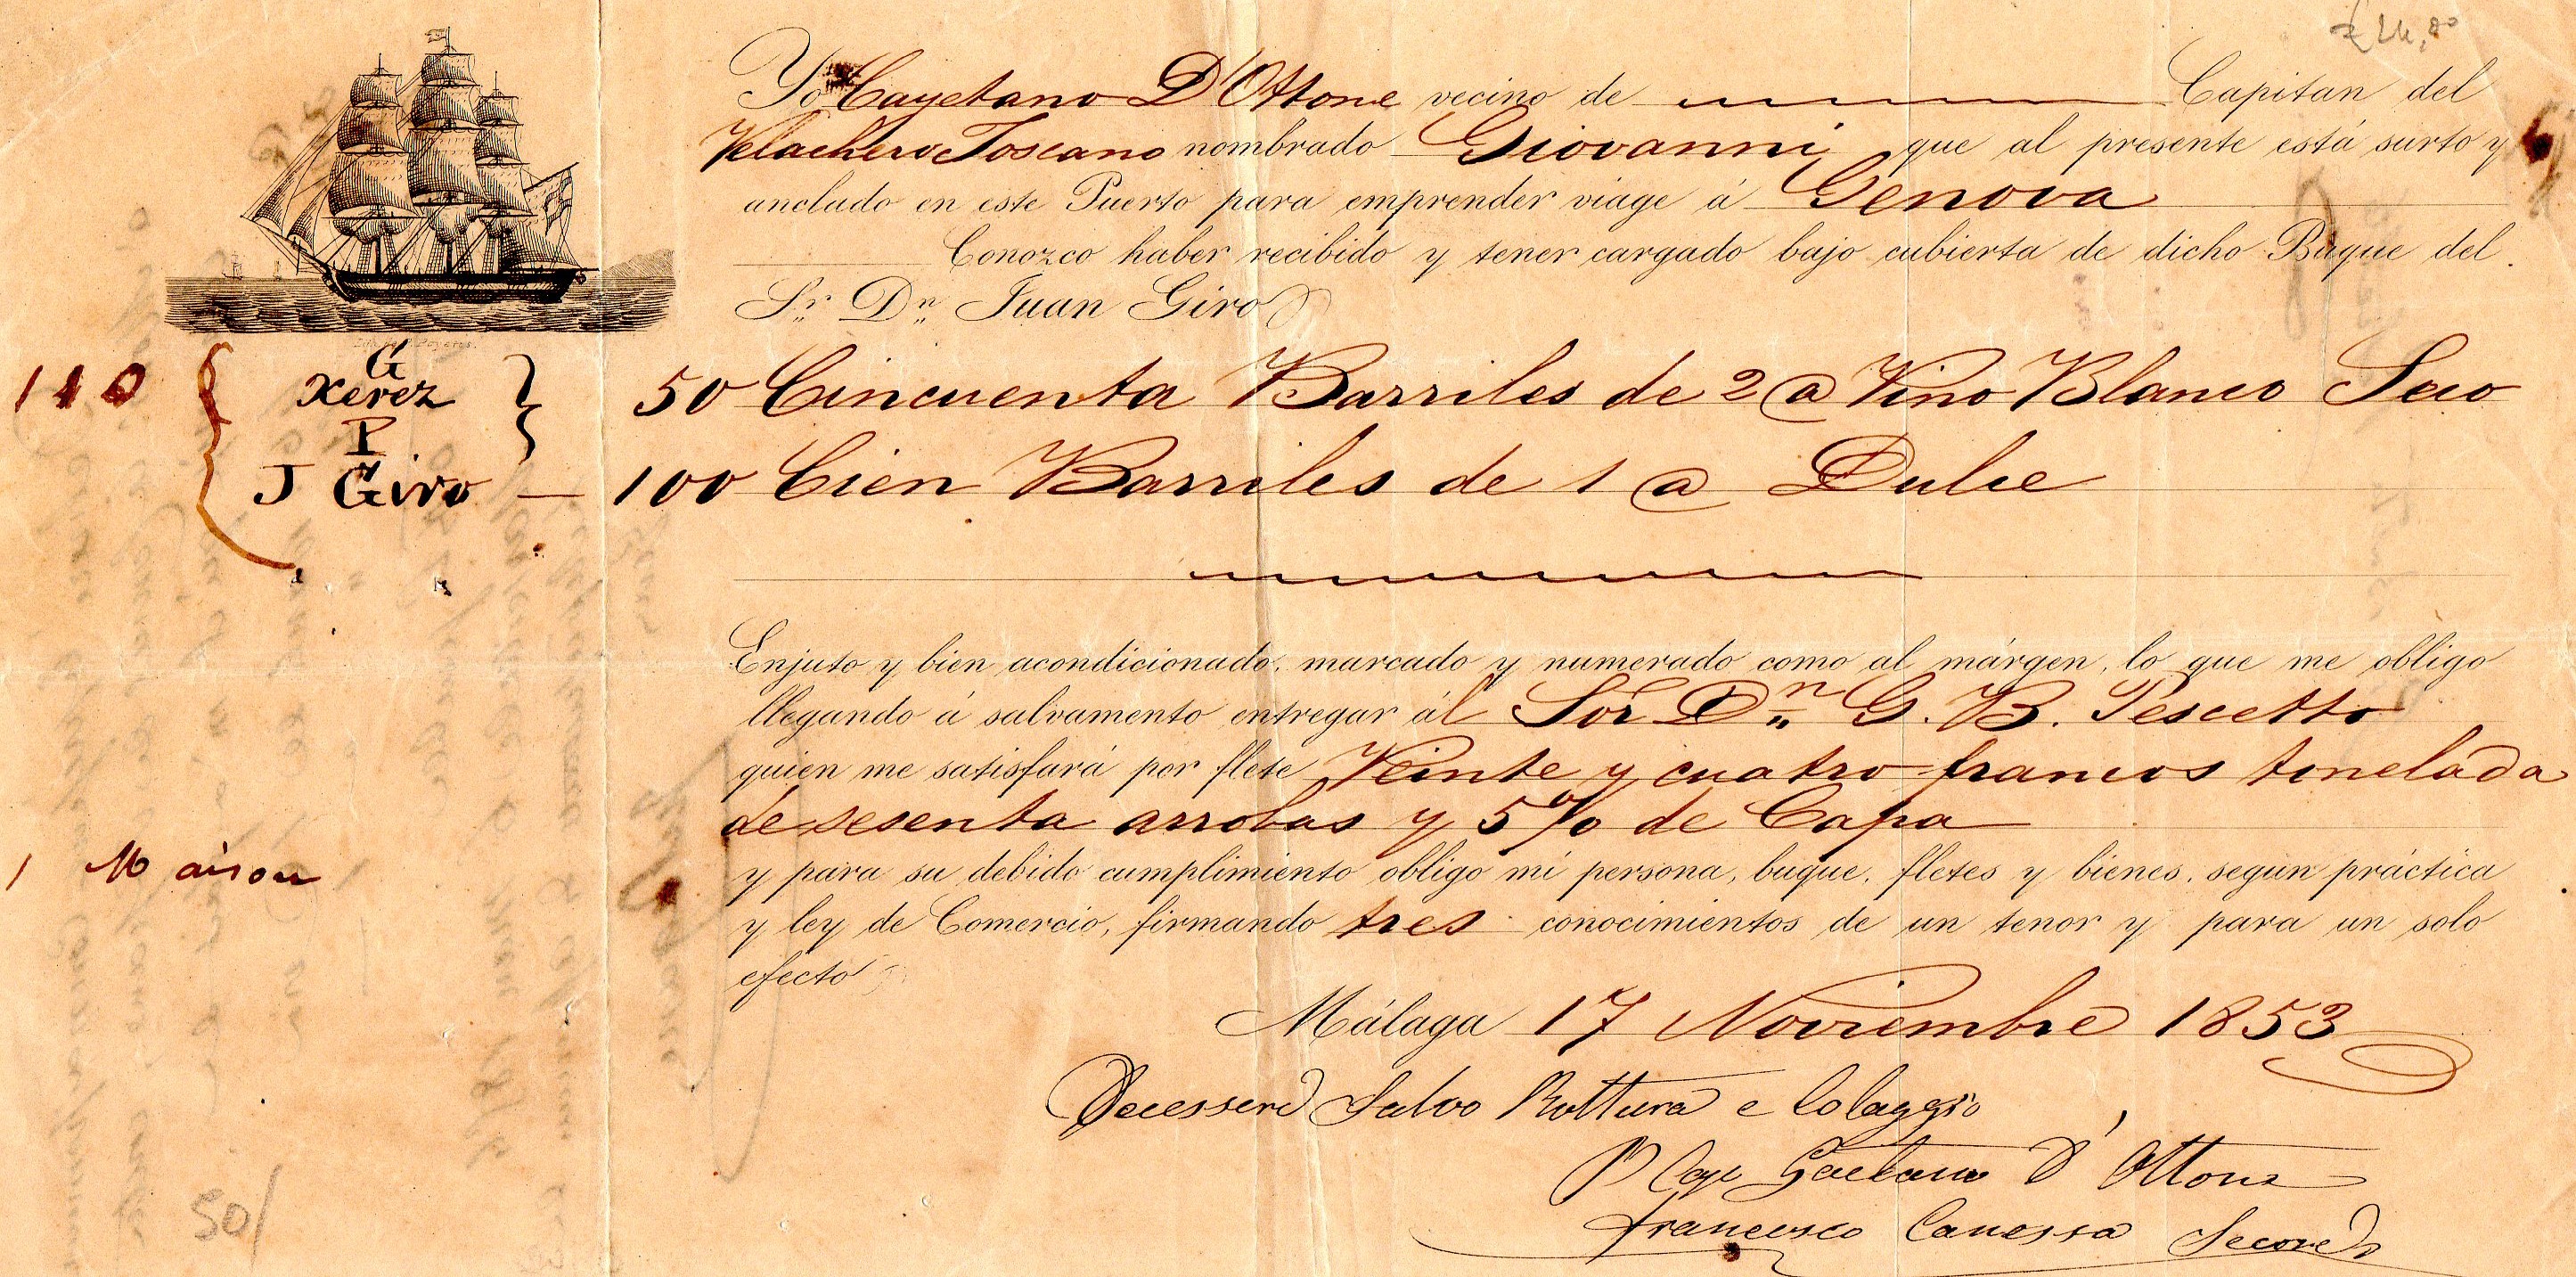 Yo Cayetano D'Ottone vecino de Capitan del
Velachero Toscano nombrado Giovanni que al presente está surto y
anclado en este Puerto para emprender viage á Genova
Conozco haber recibido y tener cargado bajo cubierta de dicho Buque del
Sr. Dn. Juan Giro
110
G
Xerez
P
J Giro
50 Cincuenta Barriles de 2 @ Vino Blanco Seco
100 Cien Barriles de 1 @ Dulce
Enjuto y bien acondicionado, marcado y numerado como al márgen, lo que me obligo
llegando á salvamento entregar ál Sor Dn. G. B. Pescetto
quien me satisfará por flete Veinte y cuatro francos tonelada
de sesenta arrobas y 5 % de Capa
y para su debido cumplimiento obligo mi persona, buque, fletes y bienes, segun práctica
y ley de Comercio, firmando tres conocimientos de un tenor y para un solo
efecto
Málaga 17 Noviembre 1853
Salvo Rottura e Colaggio
P Cap Gaetano D'Ottone
Francesco Canessa Secondo
50/